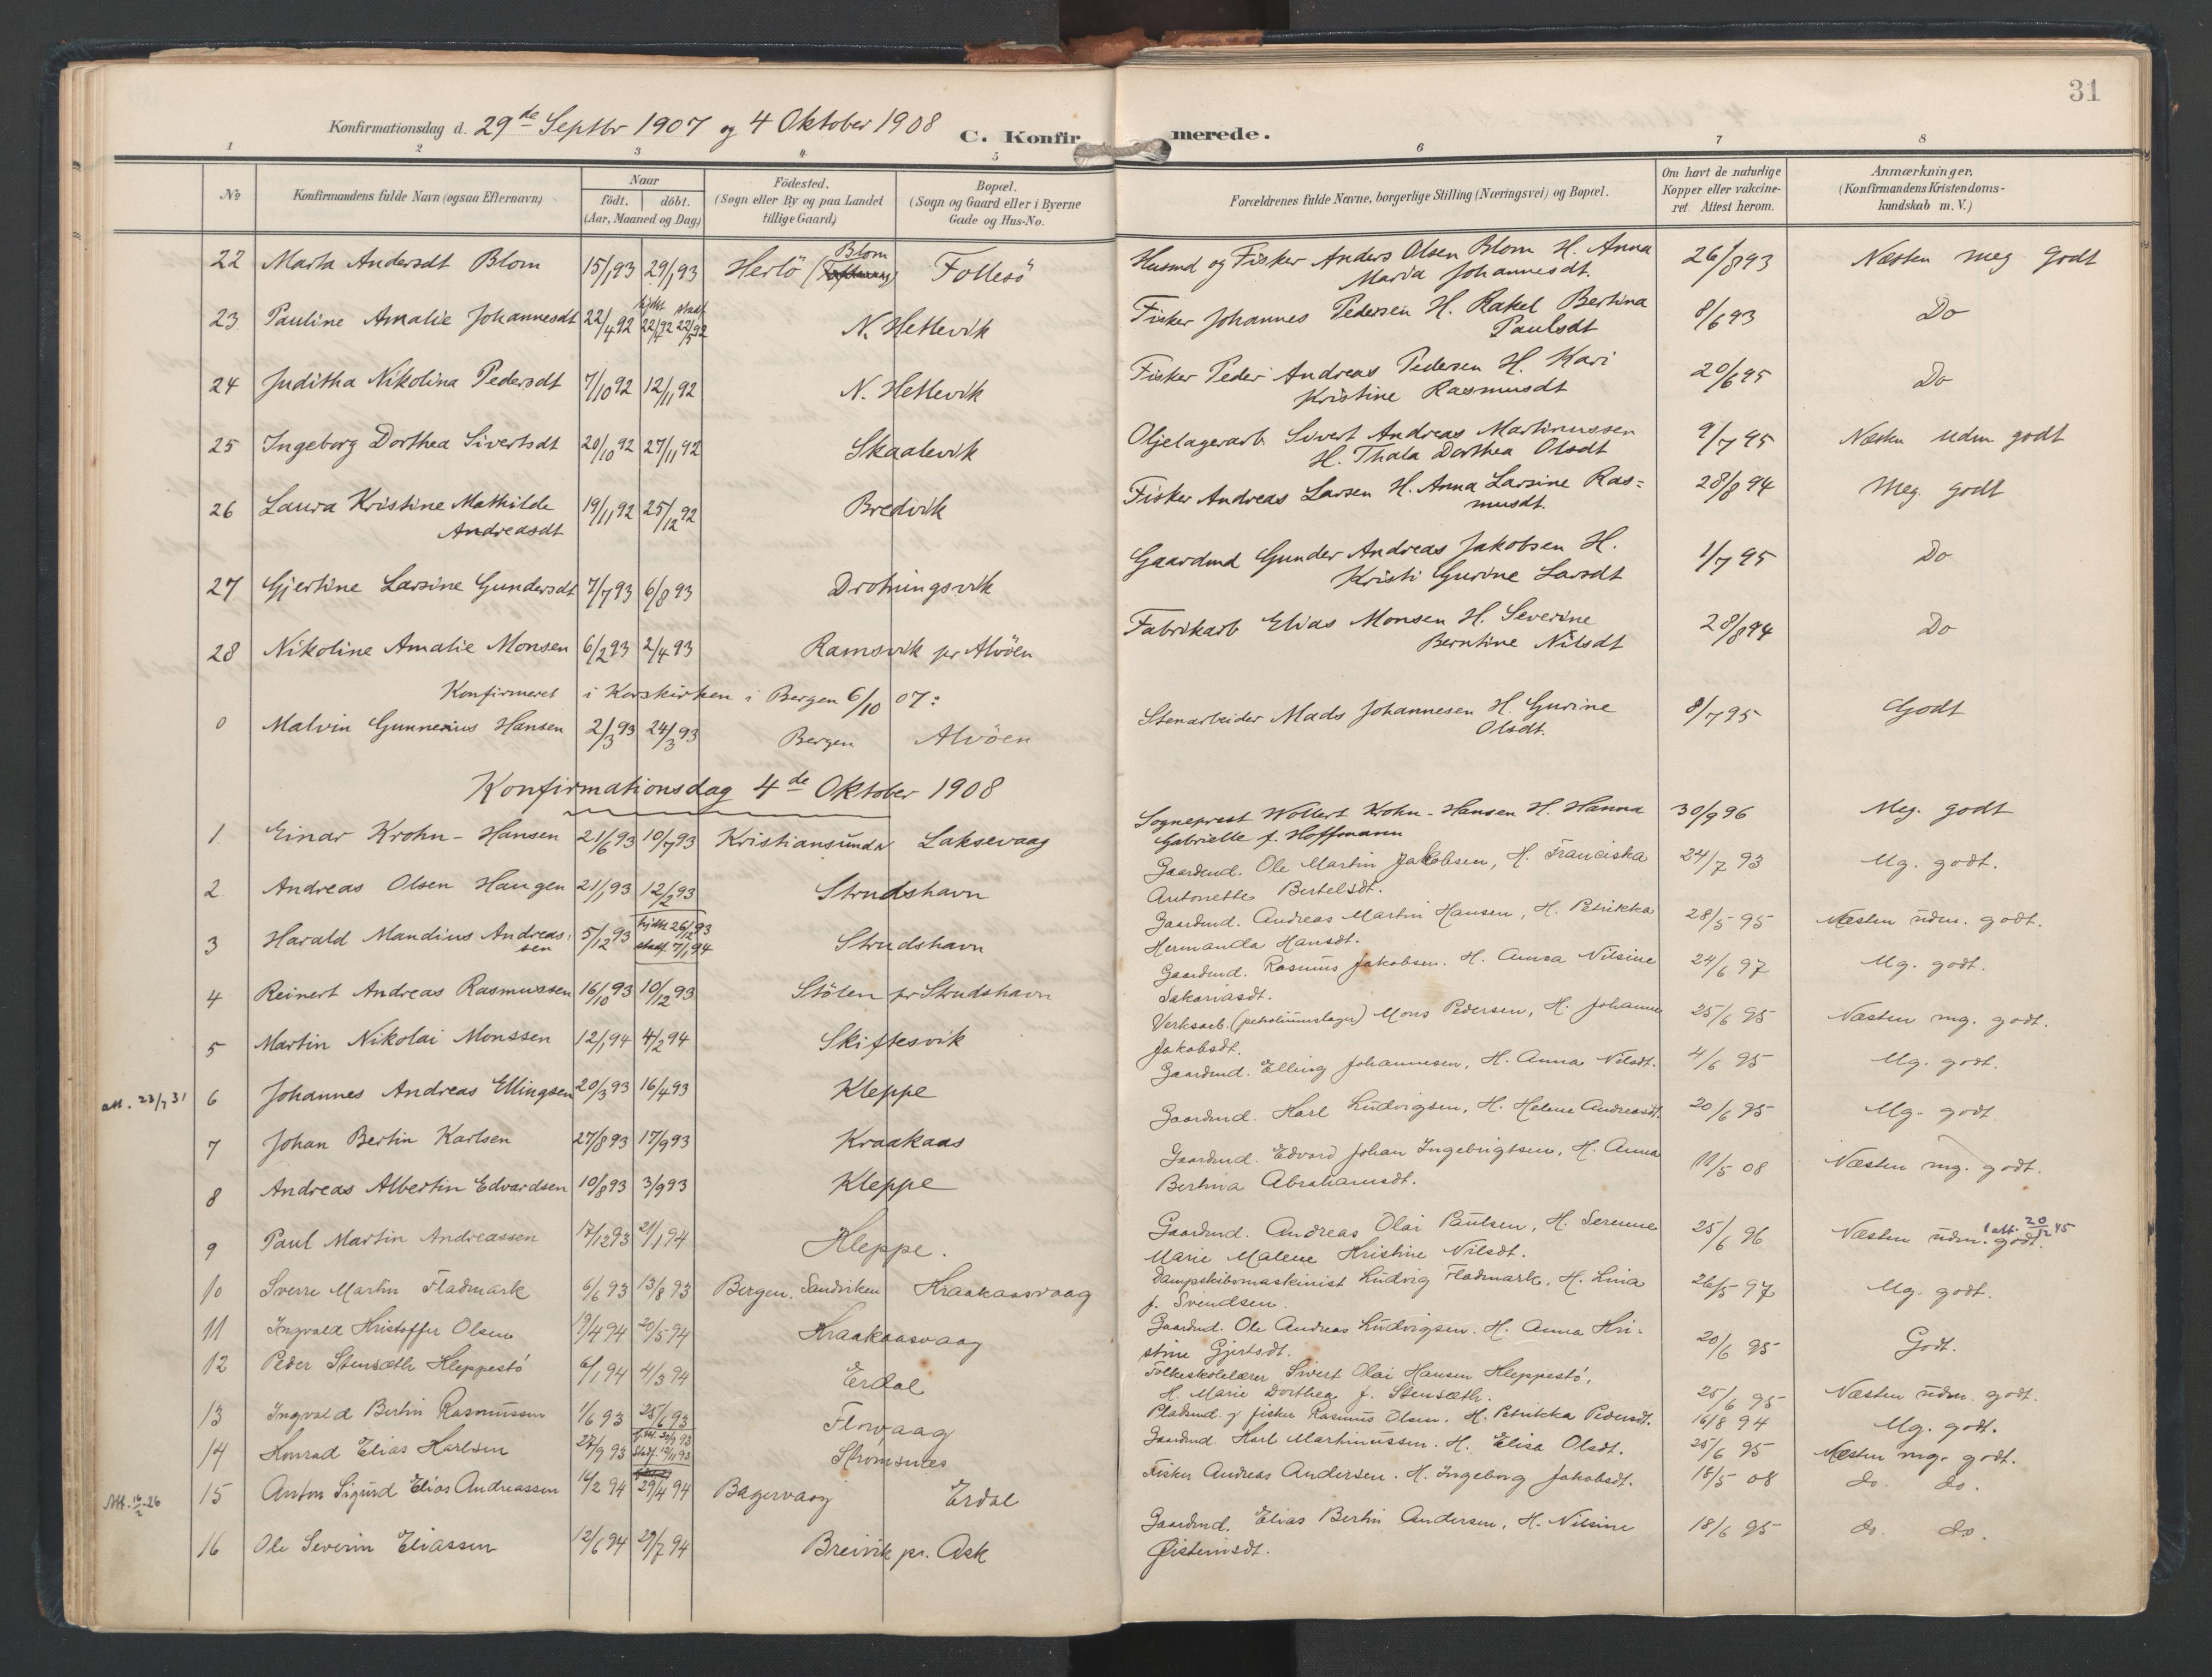 31
Konfirmationsdag d. 29de Septbr 1907 og 4 Oktober 1908 C. Konfirmerede.
1 2 3 4 5 6 7 8
No
Konfirmandens fulde Navn (ogsaa Efternavn)
Naar
födt. döbt.
(Aar, Maaned og Dag)
Födested.
(Sogn eller By og paa Landet
tillige Gaard)
Bopæl.
(Sogn og Gaard eller i Byerne
Gade og Hus-No.
Forældrenes fulde Navne, borgerlige Stilling (Næringsvei) og Bopæl.
Om havt de naturlige
Kopper eller vakcine-
ret. Attest herom.
Anmærkninger.
(Konfirmandens Kristendoms-
kundskab m. V.)
22 Marta Andersdt Blom 15/1 93 29/1 93 Herlö (Blom Follesö Husmd og Fisker Anders Olsen Blom H. Anna
Maria Johannesdt. 26/8 93 Næsten meg godt
23 Pauline Amalie Johannesdt 22/4 92 hjdt 22/4 92 stadf 22/5 92 N. Hettevik Fisker Johannes Pedersen H. Rakel Bertina
Paulsdt 8/6 93 Do
24 Juditha Nikolina Pedersdt 7/10 92 12/11 92 N. Hettevik Fisker Peder Andreas Pedersen H. Kari
Kristine Rasmusdt 20/6 95 Do
25 Ingeborg Dorthea Sivertsdt 20/10 92 27/11 92 Skaalevik Oljelagerarb. Sivert Andreas Martinussen
H. Thala Dorthea Olsdt 9/7 95 Næsten udm godt
26 Laura Kristine Mathilde
Andreasdt 19/11 92 25/12 92 Bredvik Fisker Andreas Larsen H. Anna Larsine Ras=
musdt. 28/8 94 Meg. godt
27 Gjertine Larsine Gundersdt 7/7 93 6/8 93 Drotningsvik Gaardmd Gunder Andreas Jakobsen H.
Kristi Gurine Larsdt 1/7 95 Do
28 Nikoline Amalie Monsen 6/2 93 2/4 93 Ramsvik pr Alvöen Fabrikarb Elias Monsen H. Severine
Berntine Nilsdt 28/8 94 Do
Konfirmeret i Korskirken i Bergen 6/10 07:
0 Malvin Gunnerius Hansen 2/3 93 24/3 93 Bergen Alvöen Stenarbeider Mads Johannesen H. Gurine
Olsdt. 8/7 95 Godt
Konfirmationsdag 4de Oktober 1908
1. Einar Krohn-Hansen 21/6 93 10/7 93 Kristiansund N Laksevaag Sogneprest Wollert Krohn-Hansen H. Hanna
Gabrielle f. Hoffmann 30/9 96 Meg. godt
2 Andreas Olsen Haugen 21/1 93 12/2 93 Strudshavn Gaardmd. Ole Martin Jakobsen, H. Franciska
Antonette Bertelsdt. 24/7 93 Mg. godt.
3 Harald Mandius Andreas:
sen 5/12 93 hjdt 26/12 93
stadf. 7/1 94 Strudshavn Gaardmd. Andreas Martin Hansen, H. Petrikka
Hermanda Hansdt. 28/5 95 Næsten udm. godt.
4 Reinert Andreas Rasmussen 16/10 93 10/12 93 Stölen pr Strudshavn Gaardmd. Rasmus Jakobsen. H. Anna Nilsine
Sakariasdt. 24/6 97 Mg. godt.
5 Martin Nikolai Monssen 12/1 94 4/2 94 Skiftesvik Verksarb. (petroliumslager) Mons Pedersen, H. Johanne
Jakobsdt. 25/6 95 Næsten mg. godt.
att. 23/7 31 6 Johannes Andreas Ellingsen 20/3 93 16/4 93 Kleppe Gaardmd. Elling Johannesen, H. Anna Nilsdt. 4/6 95 Mg. godt.
7 Johan Bertin Karlsen 27/8 93 17/9 93 Kraakaas Gaardmd. Karl Ludvigsen, H. Helene Andreasdt. 20/6 95 Mg. godt.
8 Andreas Albertin Edvardsen 10/8 93 3/9 93 Kleppe Gaardmd. Edvard Johan Ingebrigtsen, H. Anna
Bertina Abrahamsdt. 11/5 08 Næsten mg. godt.
9 Paul Martin Andreassen 17/12 93 21/1 94 Kleppe. Gaardmd. Andreas Olai Paulsen, H. Serenne
Marie Malene Kristine Nilsdt. 25/6 96 Næsten udm. godt. 1 att. 20/12 45
10 Sverre Martin Fladmark 6/6 93 13/8 93 Bergen, Sandviken Kraakaasvaag Dampskibsmaskinist Ludvig Fladmark, H. Lina
f. Svendsen. 26/5 97 Mg. godt.
11 Ingvald Kristoffer Olsen 19/4 94 20/5 94 Kraakaasvaag Gaardmd. Ole Andreas Ludvigsen. H. Anna Kri-
stine Gjertsdt. 20/6 95 Godt.
12 Peder Stensæth Kleppestö 6/1 94 4/3 94 Erdal Folkeskolelærer Sivert Olai Hansen Kleppestö,
H. Marie Dorthea f. Stensæth. 25/6 95 Næsten udm. godt.
13 Ingvald Bertin Rasmussen 1/6 93 25/6 93 Florvaag Pladsmd. og fisker Rasmus Olsen. H. Petrikka Pedersdt. 16/8 94 Mg. godt.
14 Konrad Elias Karlsen 27/9 93 hjdt. 30/9 93
stadf. 12/11 93 Strømsnes Gaardmd Karl Martinussen. H. Elisa Olsdt. 25/6 95 Næsten mg. godt.
Att. 16/2 26 15 Anton Sigurd Elias Andreassen 16/2 94 29/4 94 Bagervaag Erdal Fisker Andreas Andersen. H. Ingeborg Jakobsdt. 18/5 08 do. do.
16 Ole Severin Eliassen 12/6 94 29/7 94 Breivik pr. Ask Gaardmd. Elias Bertin Andersen, H. Nilsine
Øistensdt. 18/6 95 do. do.